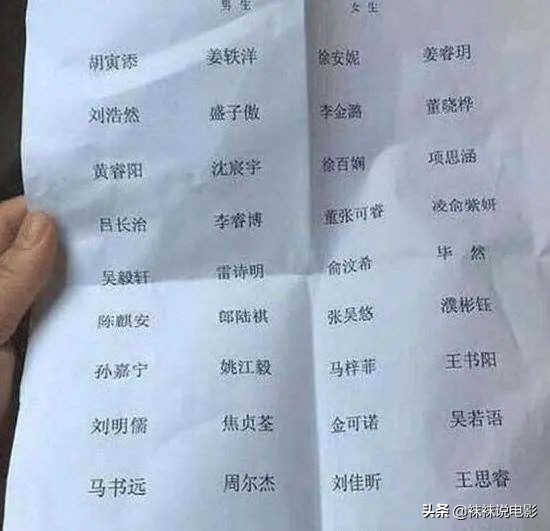 男生 女生
胡寅添 姜轶洋 徐安妮 姜睿玥
刘浩然 盛子傲 李金潞 董晓桦
黄睿阳 沈宸宇 徐百娴 项思涵
吕长治 李睿博 董张可睿 凌俞紫妍
吴毅轩 雷诗明 俞汶希 毕然
陈麒安 郎陆祺 张昊悠 濮彬钰
孙嘉宁 姚江毅 马梓菲 王书阳
刘明儒 焦贞荃 金可诺 吴若语
马书远 周尔杰 刘佳昕 王思睿
头条 @袜袜说电影